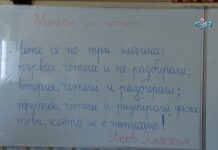 Маратон на четенето
Чете се по три начина:
първия, четеш и не разбираш;
втория, четеш и разбираш;
третия, четеш и разбираш даже
това, което не е написано!
Яков Княжнин